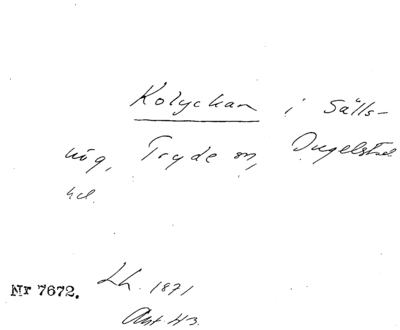 Kolyckan i Sälls-
hög, Tryde sn, Ingelstad
hd.
Nr 7672. Lh. 1871
Ant. H3.